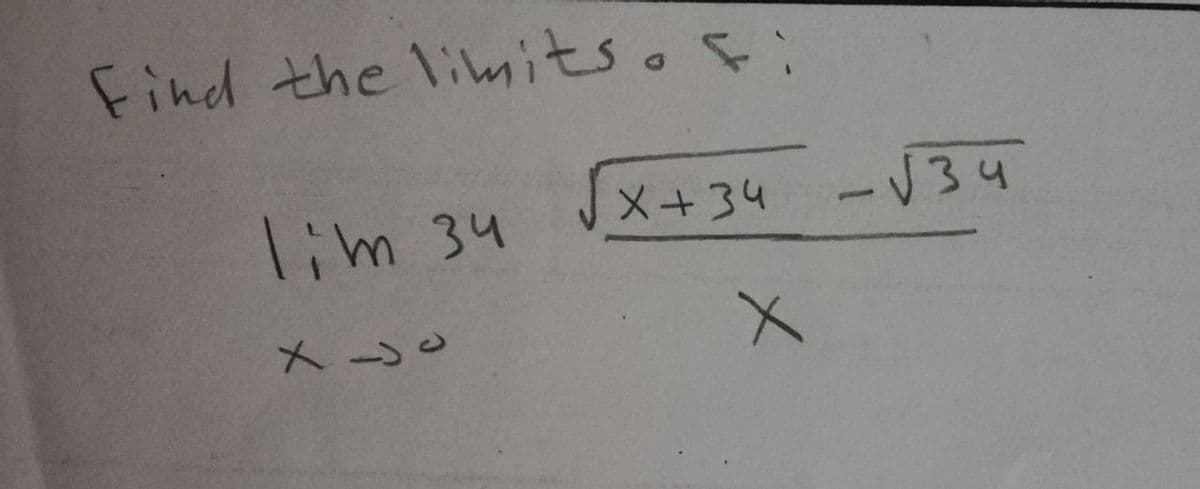 Find the limits of:
lim 34 √x+34 - √34
x→0 x